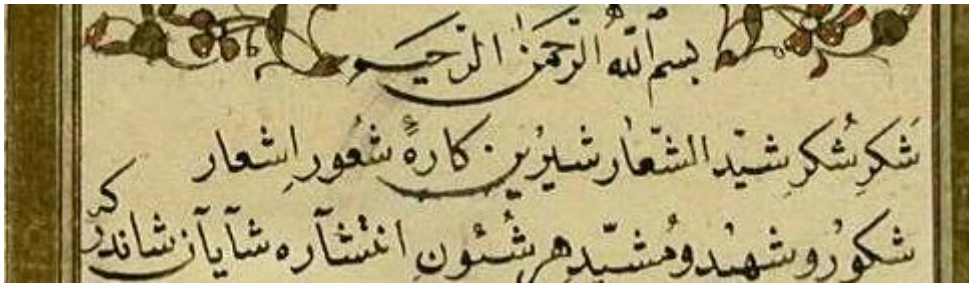 بسم الله الرحمن الرحيم
شَكرِ شُكر شيّد الشّعار شيرُين كارهٔ شعُور اِشعار
شكوُر و شهيْد و مُشيّدِ هر شُئون انتْشآره شآيآن شاندر كه